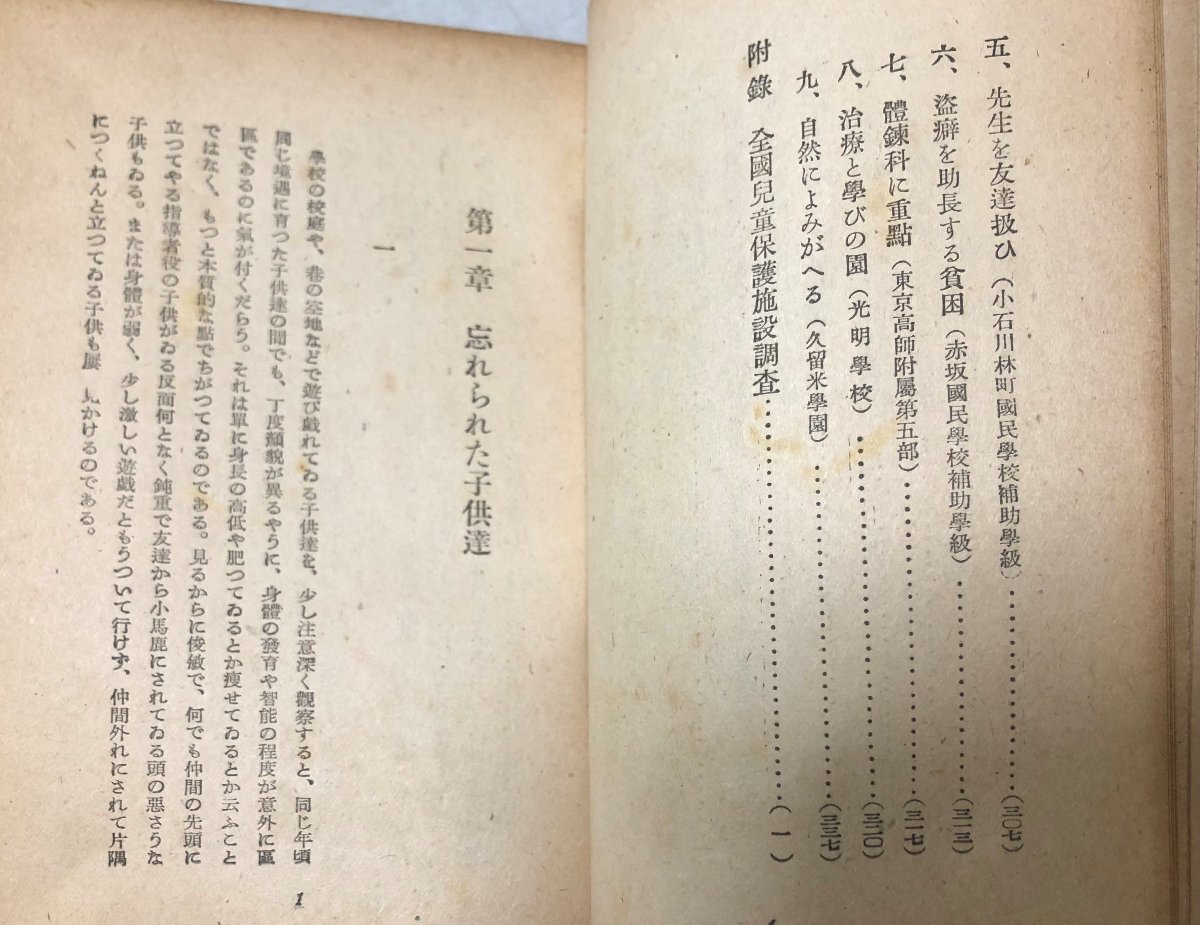 五、先生を友達扱ひ（小石川林町國民學校補助學級）……………………（三〇七）
六、盜癖を助長する貧困（赤坂國民學校補助學級）……………………（三一三）
七、體鍊科に重點（東京高師附屬第五部）……………………（三一七）
八、治療と學びの園（光明學校）……………………（三二〇）
九、自然によみがへる（久留米學園）……………………（三三七）
附錄　全國兒童保護施設調査……………………（一）
第一章　忘れられた子供達
一
學校の校庭や、巷の空地などで遊び戲れてゐる子供達を、少し注意深く觀察すると、同じ年頃
同じ境遇に育つた子供達の間でも、丁度顏貌が異るやうに、身體の發育や智能の程度が意外に區
區であるのに氣が付くだらう。それは單に身長の高低や肥つてゐるとか瘦せてゐるとか云ふこと
ではなく、もつと本質的な點でちがつてゐるのである。見るからに俊敏で、何でも仲間の先頭に
立つてやる指導者役の子供がゐる反面何となく鈍重で友達から小馬鹿にされてゐる頭の惡さうな
子供もゐる。または身體が弱く、少し激しい遊戲だともうついて行けず、仲間外れにされて片隅
につくねんと立つてゐる子供も屢　見かけるのである。
1